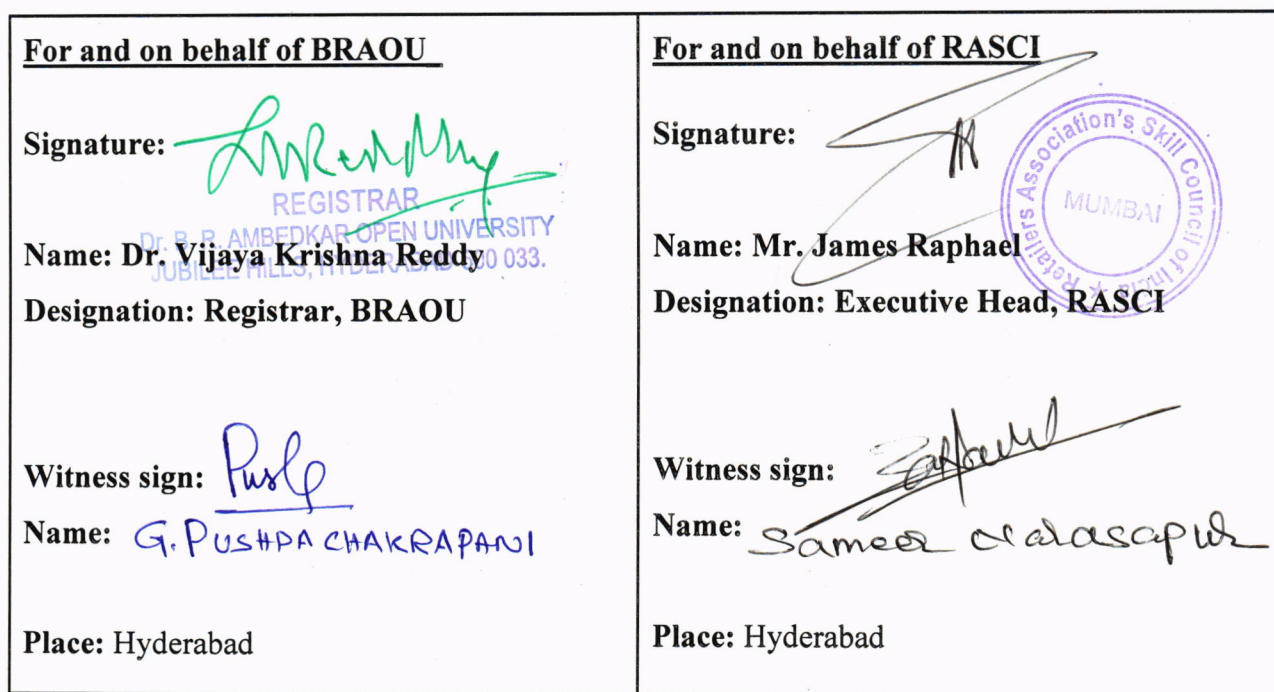 For and on behalf of BRAOU
Signature:
REGISTRAR
Dr. B. R. AMBEDKAR OPEN UNIVERSITY
JUBILEE HILLS, HYDERABAD-500 033.
Name: Dr. Vijaya Krishna Reddy
Designation: Registrar, BRAOU
Witness sign:
Name: G. PUSHPA CHAKRAPANI
Place: Hyderabad
For and on behalf of RASCI
Signature:
Retailers Association's Skill Council of India
MUMBAI
Name: Mr. James Raphael
Designation: Executive Head, RASCI
Witness sign:
Name: Sameer Narasapur
Place: Hyderabad